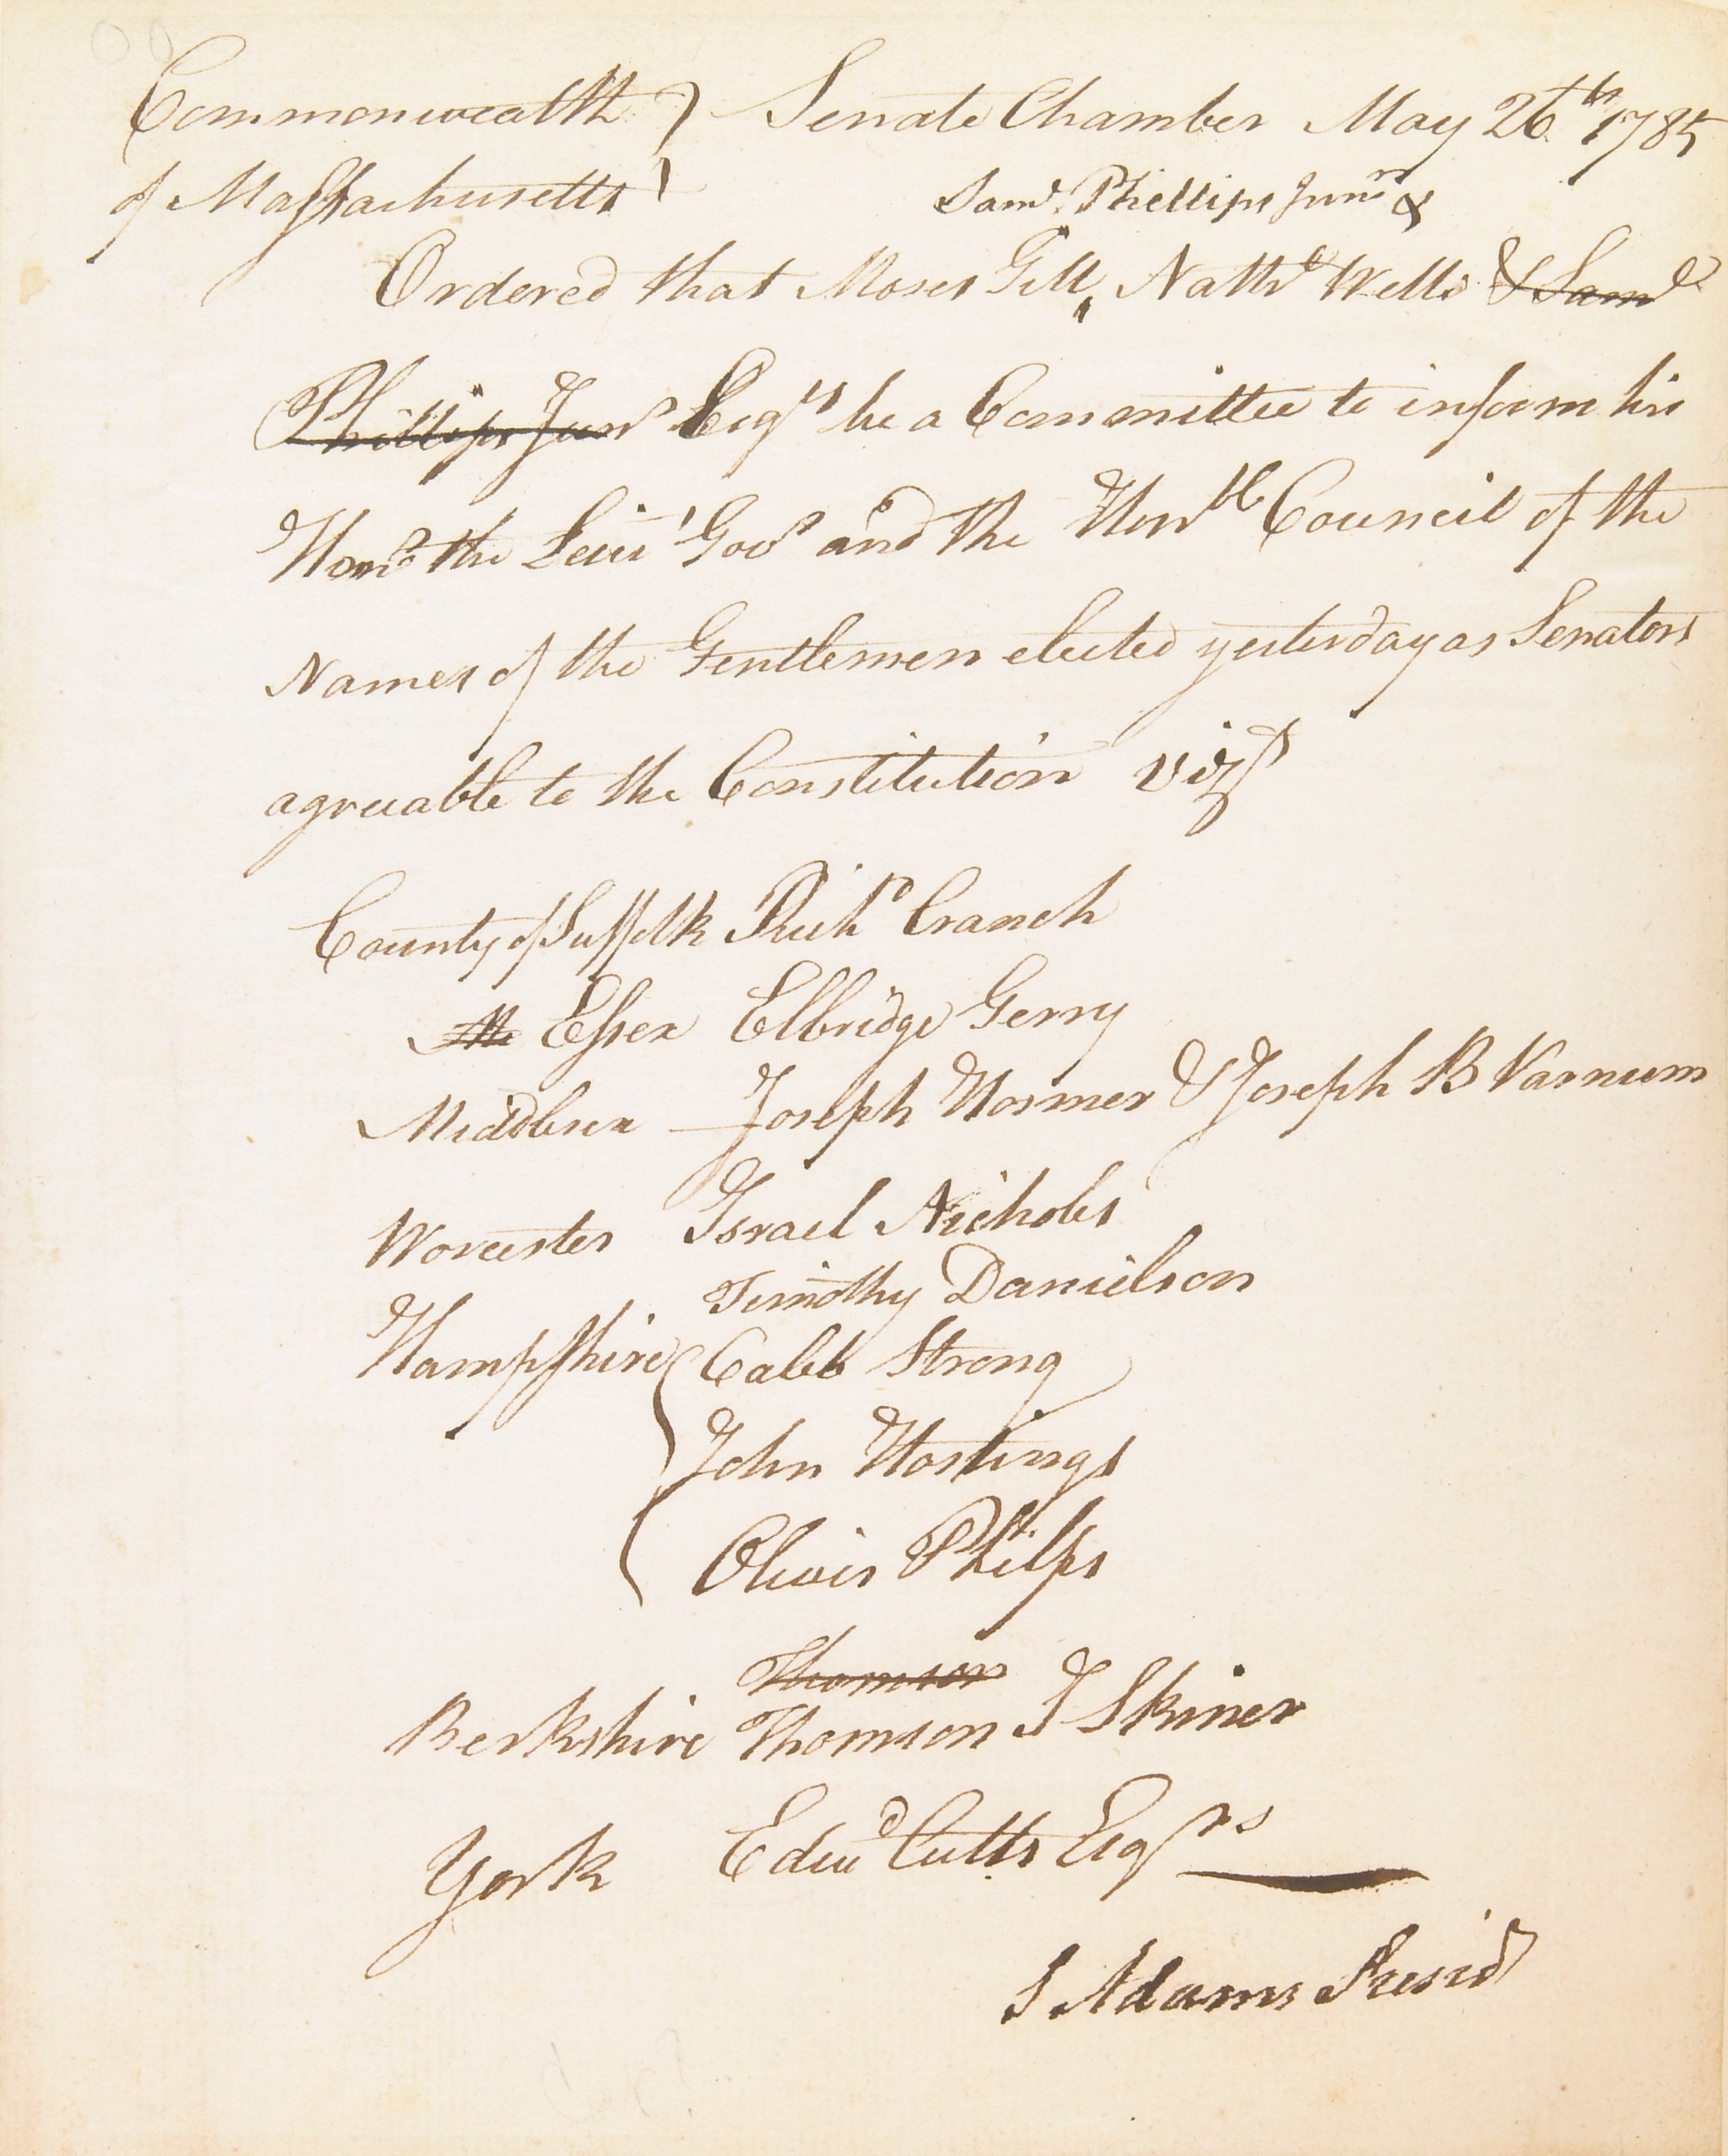 Commonwealth } Senate Chamber May 26th 1785
of Massachusetts }
Saml. Phillips Junr &
Ordered that Moses Gill, Nathl Wells & Saml
Phillips Junr Esqrs be a Committee to inform his
Honr the Leiut Govr and the Honble Council of the
Names of the Gentlemen elected yesterday as Senators
agreeable to the Constitution vizt
County of Suffolk Richd Cranch
Essex Elbridge Gerry
Middlesex Joseph Hosmer & Joseph B Varnum
Worcester Israel Nichols
Timothy Danielson
Hampshire { Caleb Strong
John Hastings
Oliver Phelps
Thomson
Berkshire Thomson J Skiner
York Edwd Cutts Esqrs
S Adams Presidt